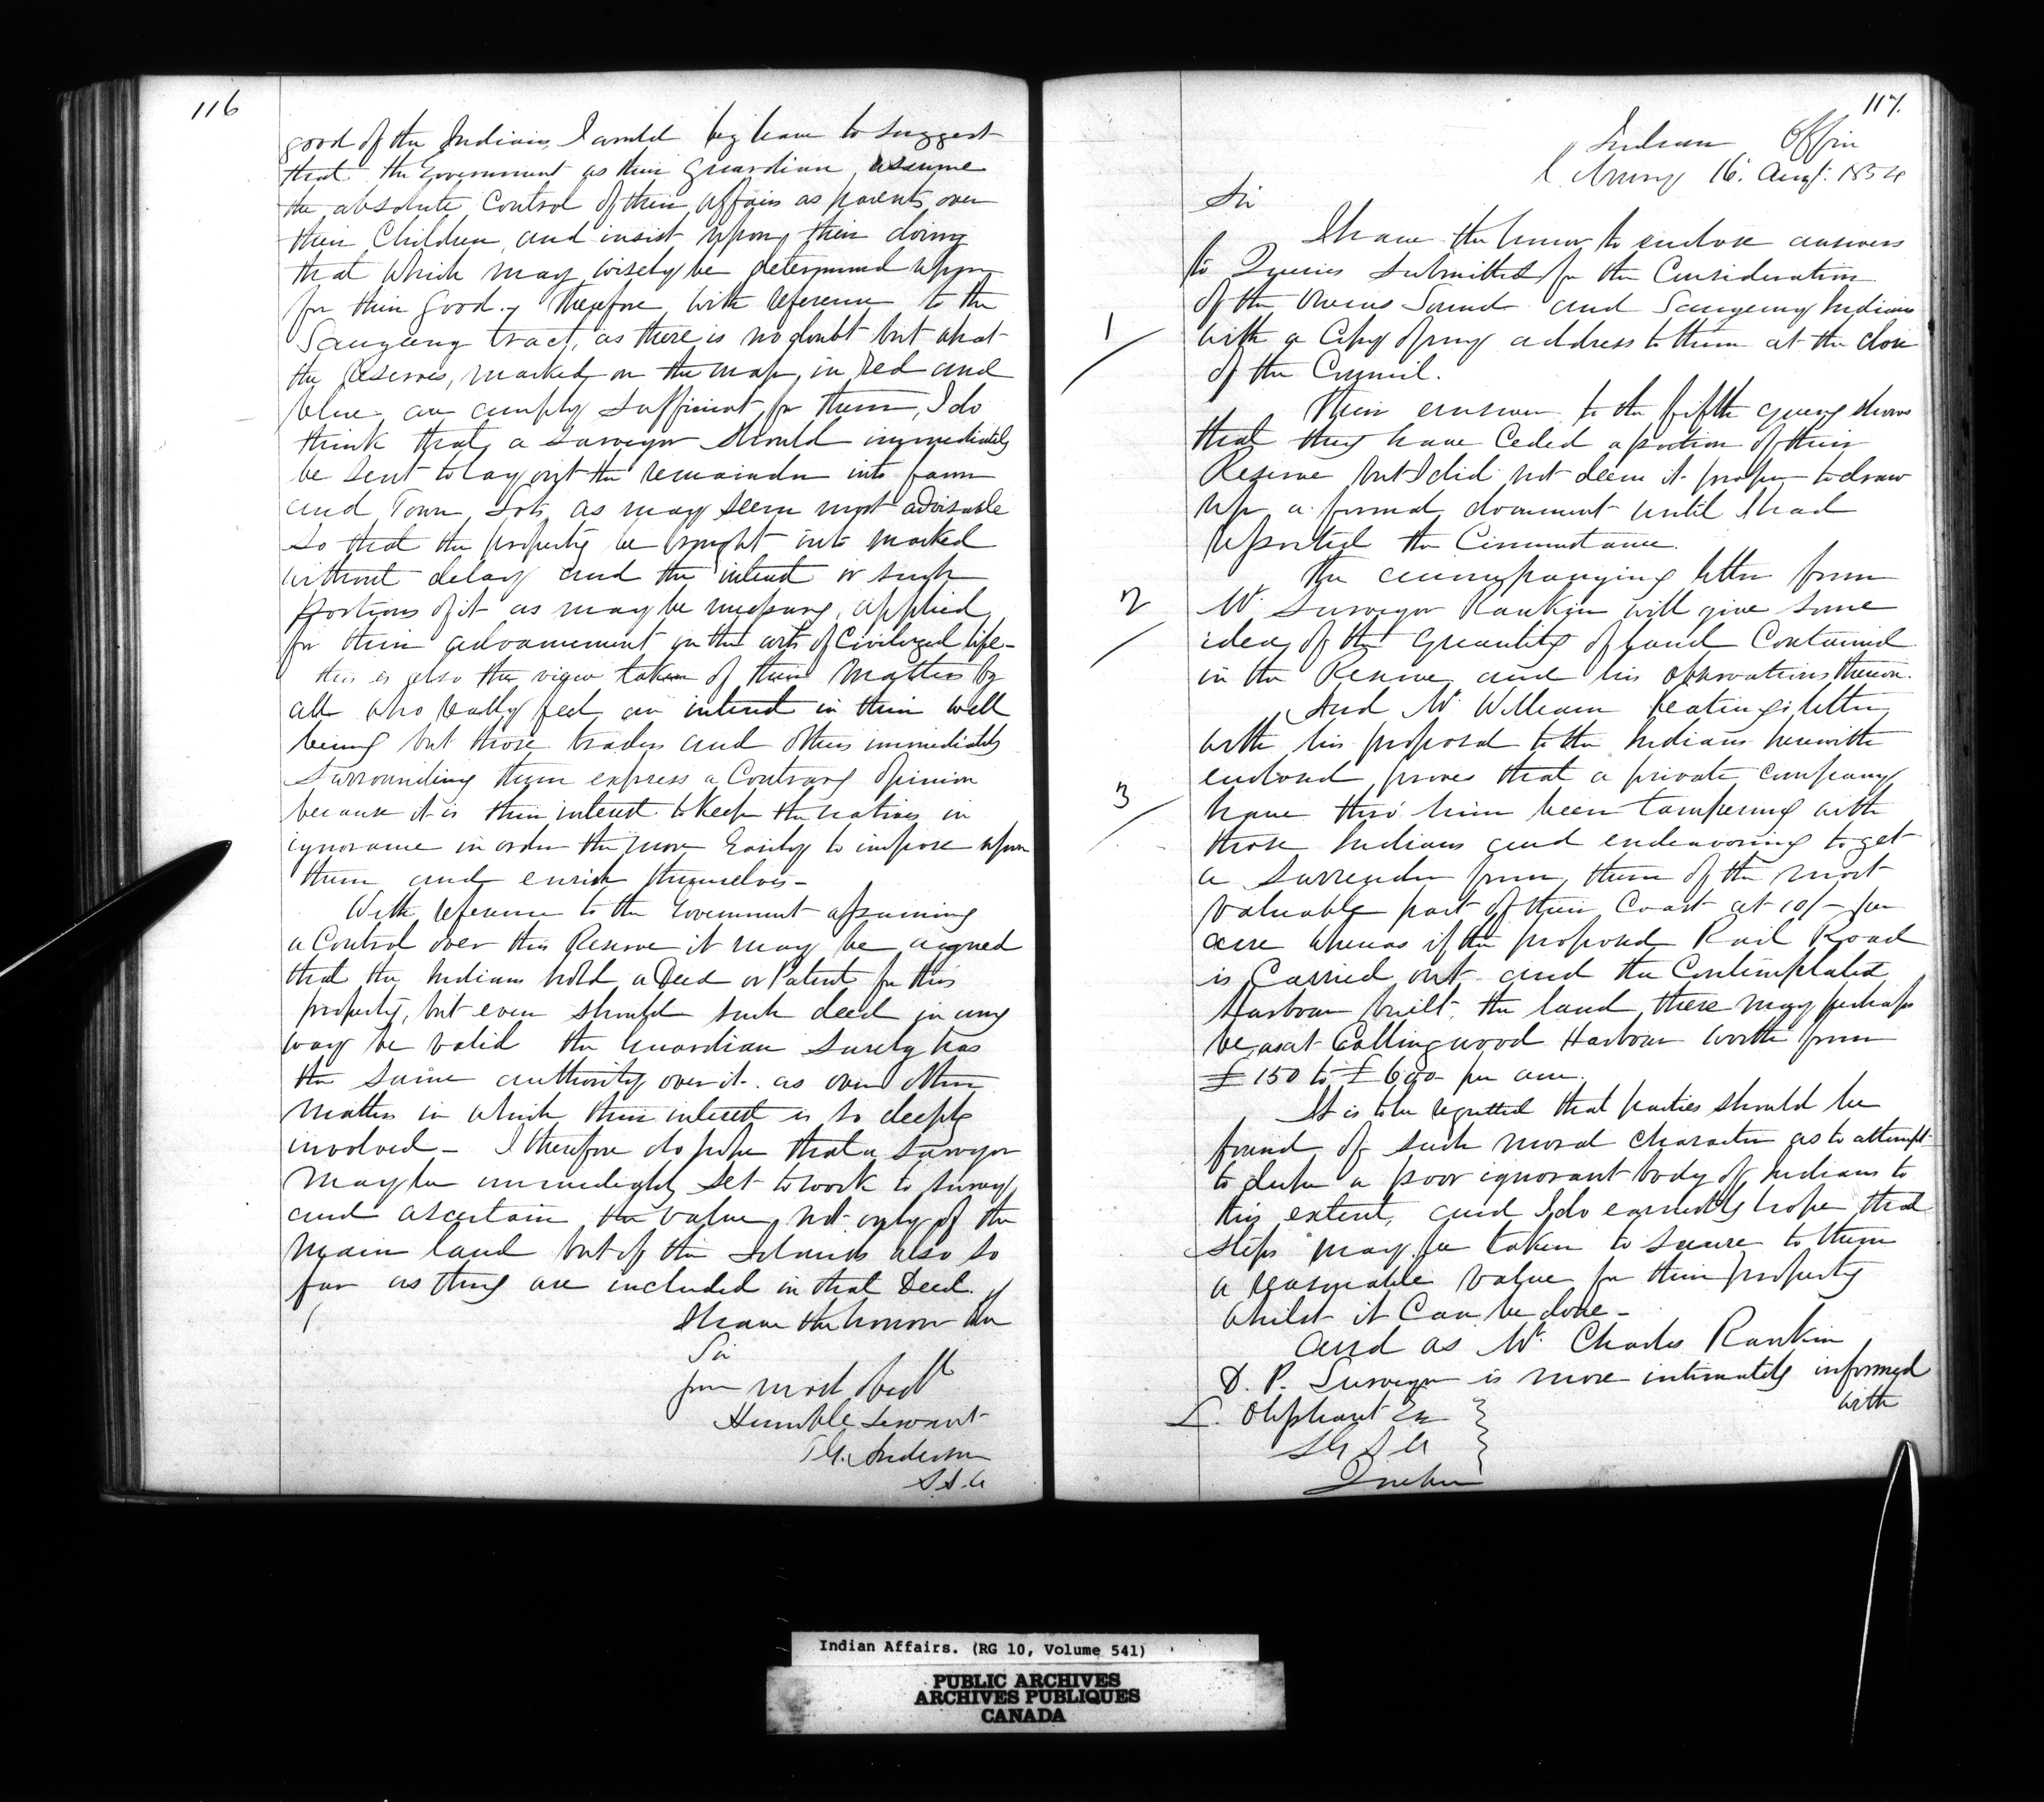 116
good of the Indians, I would beg leave to suggest
that the Government as their guardian, assume
the absolute control of their affairs as parents over
their Children, and insist upon their doing
that which may wisely be determined upon
for their good. Therefore with reference to the
Saugeeng tract, as there is no doubt but what
the Reserves, marked on the map, in red and
blue are amply sufficient for them, I do
think that a Surveyor should immediately
be sent to lay out the remainder into farm
and Town Lots as may seem most advisable
so that the property be brought into market
without delay and the interest or such
portions of it as may be necessary, applied
for their advancement in the arts of Civilized life -
this is also the view taken of these matters by
all who really feel an interest in their well
being but those traders and others immediately
surrounding them express a Contrary opinion
because it is their interest to keep the natives in
ignorance in order the more Easily to impose upon
them and enrich themselves -
With reference to the Government assuming
a Control over this Reserve it may be argued
that the Indians hold a Deed or Patent for this
property, but even should such deed in any
way be valid the Guardian surely has
the same authority over it as over other
matters in which their interest is so deeply
involved - I therefore do hope that a Surveyor
may be immediately set to work to survey
and ascertain the value, not only of the
main land but of the Islands also so
far as they are included in that Deed.
I have the honor to be
Sir
your most obedt
Humble Servant
T G. Anderson
S.I.A
117.
Indian Office
Cobourg 16. Augt. 1854
Sir
I have the honor to enclose answers
to Queries submitted for the Consideration
of the Owens Sound and Saugeeng Indians
1
with a Copy of my address to them at the close
of the Council.
Their answer to the fifth query shows
that they have Ceded a portion of their
Reserve but I did not deem it proper to draw
up a formal document until I had
reported the Circumstance.
The accompanying letter from
2
Mr. Surveyor Rankin will give some
idea of the quantity of land Contained
in the Reserve and his observations thereon.
And Mr William Keatings letter
with his proposal to the Indians herewith
enclosed, proves that a private company
3
have thro' him been tampering with
those Indians and endeavoring to get
a Surrender from them of the most
valuable part of their Coast at 10/- per
acre whereas if the proposed Rail Road
is Carried out and the Contemplated
Harbour built, the land there may perhaps
be, as at Collingwood Harbour worth from
£150 to £600 per acre.
It is to be regretted that parties should be
found of such moral character as to attempt
to dupe a poor ignorant body of Indians to
this extent, and I do earnestly hope that
steps may be taken to secure to them
a reasonable value for their property
whilst it Can be done -
And as Mr. Charles Rankin
D. P. Surveyor is more intimately informed
with
L. Oliphant Esq
S G I A
Quebec
Indian Affairs. (RG 10, Volume 541)
PUBLIC ARCHIVES
ARCHIVES PUBLIQUES
CANADA